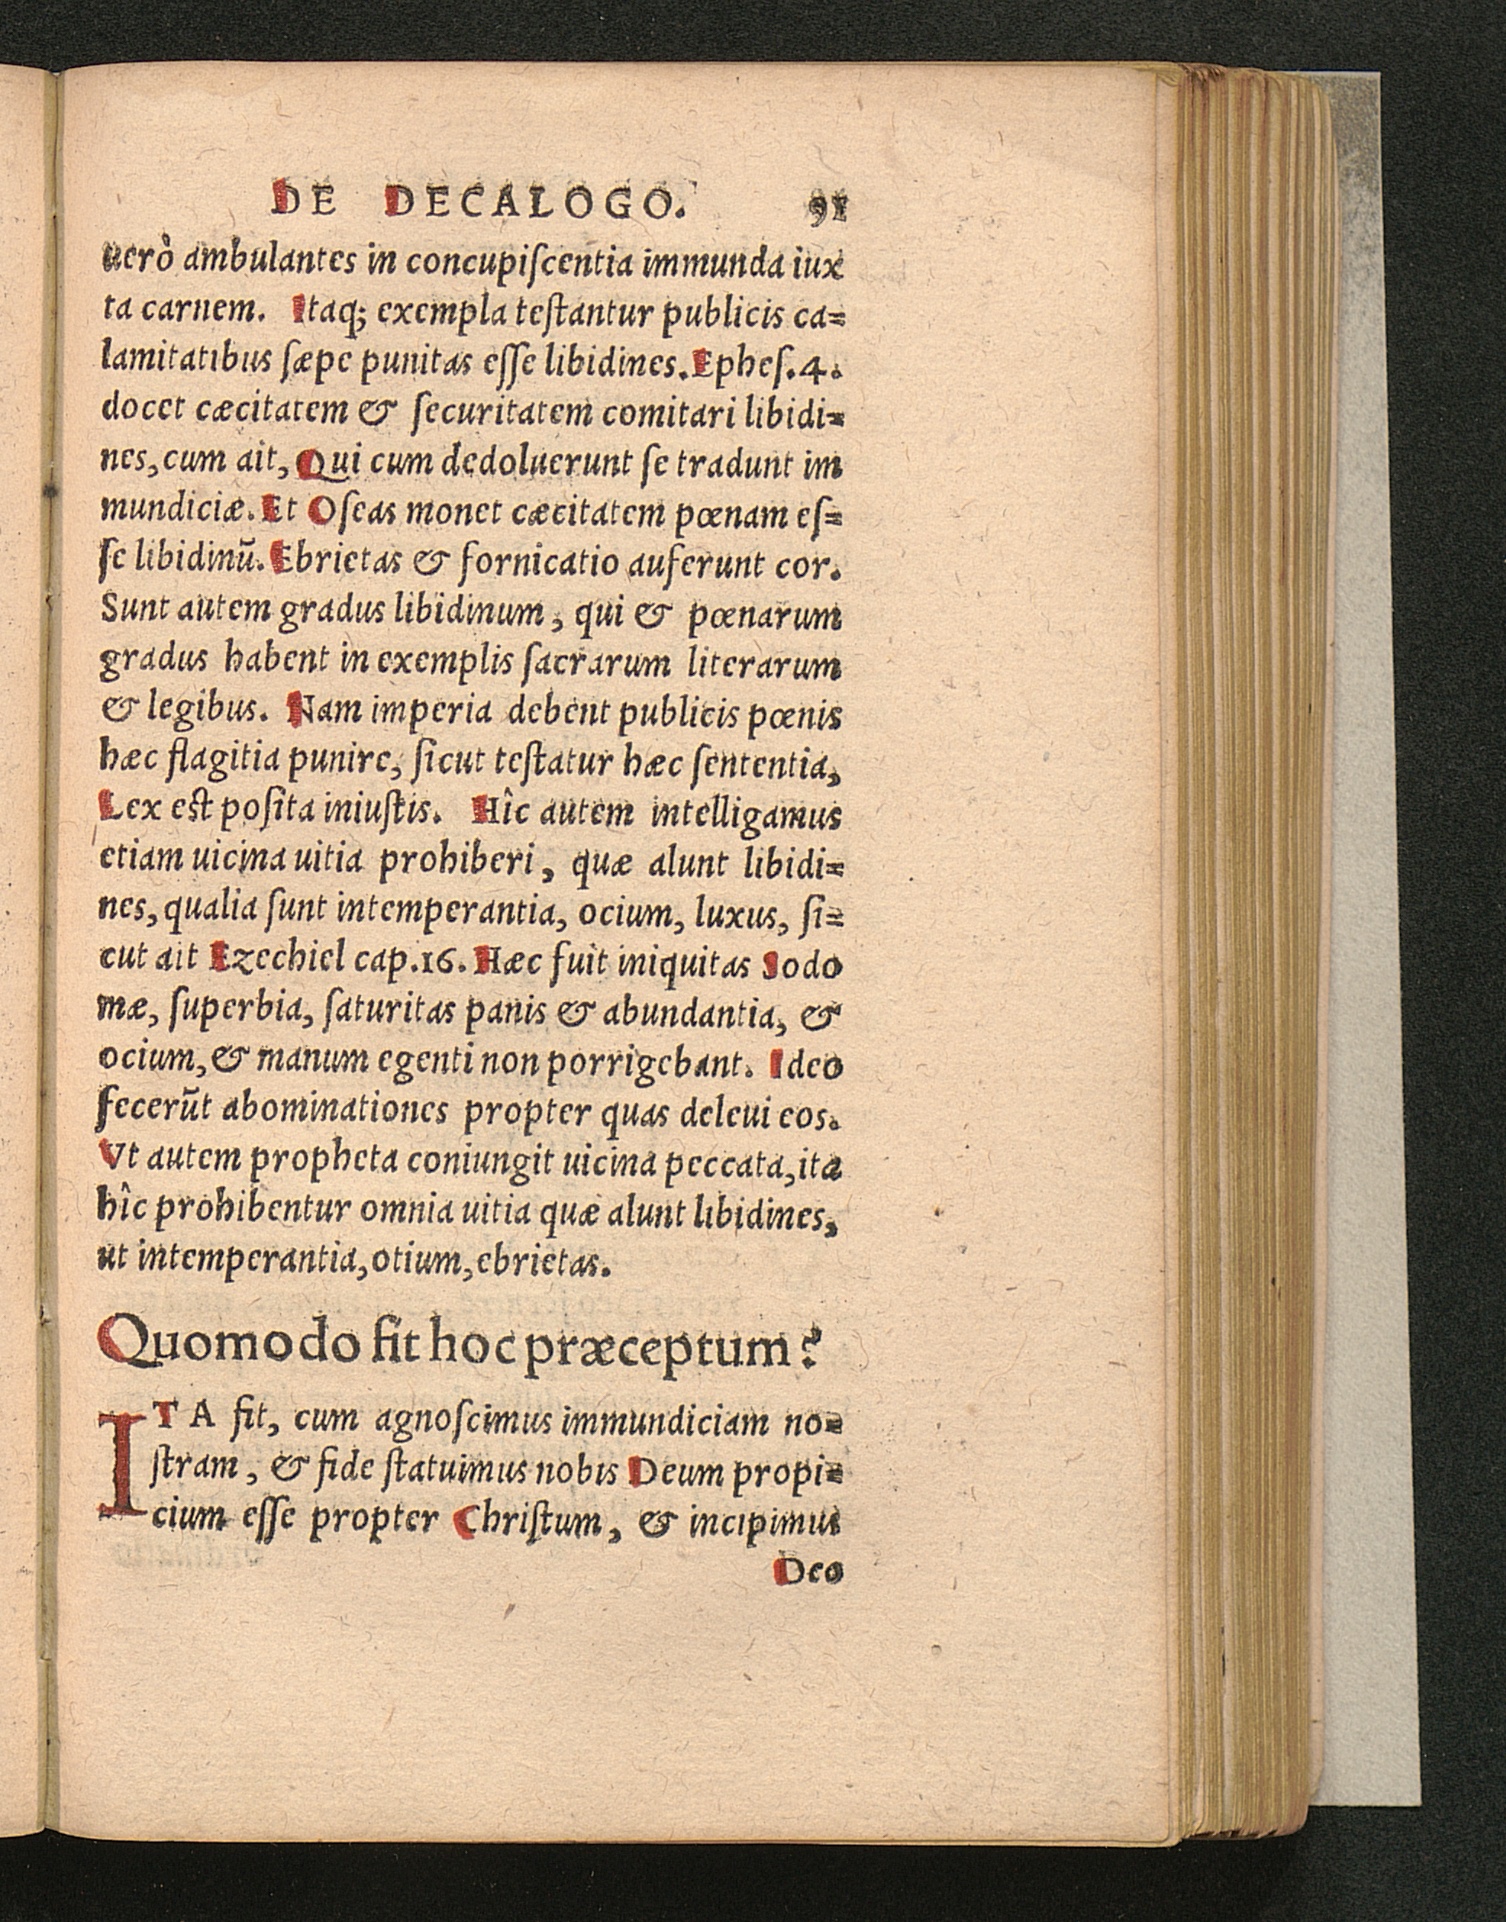 DE DECALOGO. 91
uerò ambulantes in concupiſcentia immunda iux
ta carnem. Itaq; exempla teſtantur publicis ca=
lamitatibus ſæpe punitas eſſe libidines. Epheſ. 4.
docet cæcitatem & ſecuritatem comitari libidi=
nes, cum ait, Qui cum dedoluerunt ſe tradunt im
mundiciæ. Et Oſeas monet cæcitatem pœnam eſ=
ſe libidinū. Ebrietas & fornicatio auferunt cor.
Sunt autem gradus libidinum, qui & pœnarum
gradus habent in exemplis ſacrarum literarum
& legibus. Nam imperia debent publicis pœnis
hæc flagitia punire, ſicut teſtatur hæc ſententia,
Lex eſt poſita iniuſtis. Hîc autem intelligamus
etiam uicina uitia prohiberi, quæ alunt libidi=
nes, qualia ſunt intemperantia, ocium, luxus, ſi=
cut ait Ezechiel cap. 16. Hæc fuit iniquitas Sodo
mæ, ſuperbia, ſaturitas panis & abundantia, &
ocium, & manum egenti non porrigebant. Ideo
fecerūt abominationes propter quas deleui eos.
Vt autem propheta coniungit uicina peccata, ita
hîc prohibentur omnia uitia quæ alunt libidines,
ut intemperantia, otium, ebrietas.
Quomodo fit hoc præceptum?
ITA fit, cum agnoſcimus immundiciam no=
ſtram, & fide ſtatuimus nobis Deum propi=
cium eſſe propter Chriſtum, & incipimus
Deo